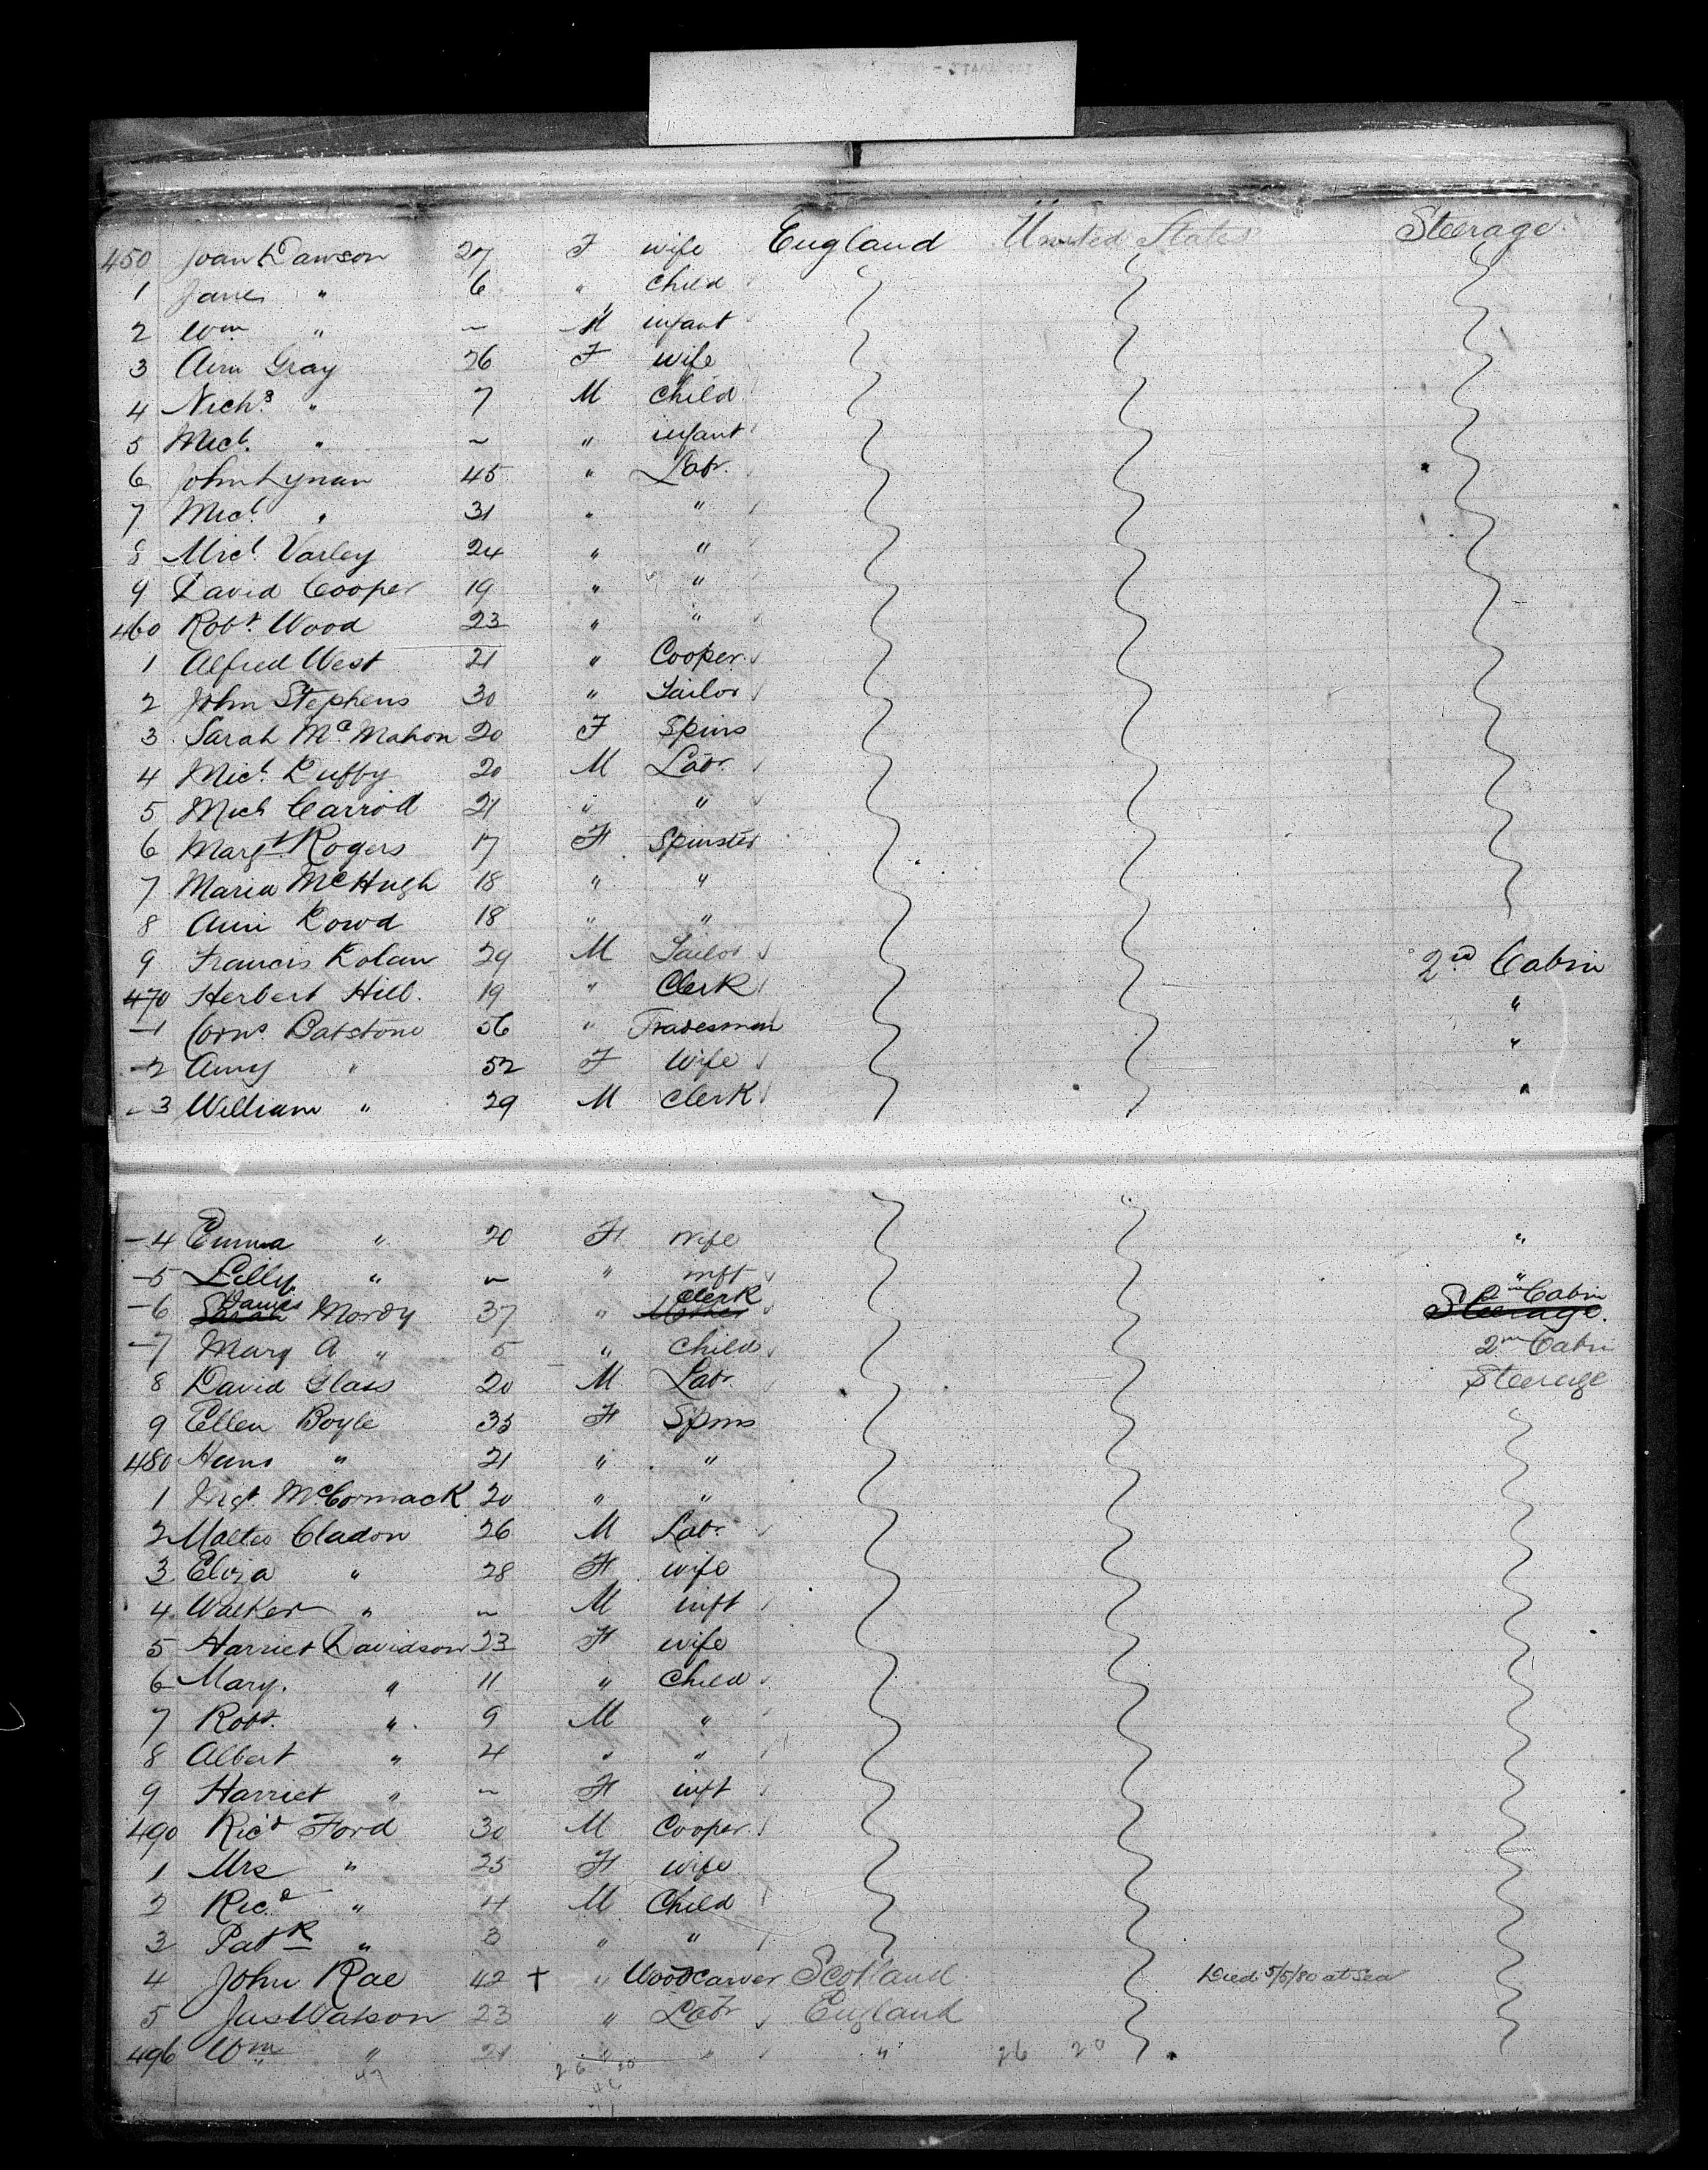 450 Joan Dawson 27 F wife England United States Steerage
1 Jane " 6 " Child
2 Wm " ~ M infant
3 Ann Gray 26 F wife
4 Nichs " 7 M Child
5 Micl. " ~ " infant
6 John Lynan 45 " Labr.
7 Micl. " 31 " "
8 Micl. Varley 24 " "
9 David Cooper 19 " "
460 Robt. Wood 23 " "
1 Alfred West 21 " Cooper
2 John Stephens 30 " Tailor
3 Sarah McMahon 20 F Spins
4 Micl. Duffy 20 M Labr.
5 Mich Carrod 21 " "
6 Margt. Rogers 17 F Spinster
7 Maria McHugh 18 " "
8 Ann Dowd 18 " "
9 Francis Dolan 29 M Tailor 2nd Cabin
470 Herbert Hill. 19 " Clerk "
-1 Corns. Batstone 56 " Tradesman "
-2 Amy " 52 F Wife
-3 William " 29 M Clerk "
-4 Emma " 20 F wife "
-5 Lilly " ~ " inft "
-6 Sarah James Mordy 37 " Clerk Steerage 2nd Cabin
-7 Mary A " 5 " Child 2nd Cabin
8 David Glass 20 M Labr. Steerage
9 Ellen Boyle 35 F Spins
480 " 21 " "
1 Mgt. McCormack 20 " "
2 Cladon 26 M Labr.
3 Eliza " 28 F wife
4 Walker " ~ M inft
5 Harriet Davidson 23 F wife
6 Mary. " 11 " Child
7 Robt. " 9 M "
8 Albert " 4 " "
9 Harriet " ~ F inft
490 Ricd Ford 30 M Cooper
1 Mrs " 25 F wife
2 Ricd " 4 M Child
3 Patk " 3 " "
4 John Rae 42 + " Woodcarver Scotland Died 5/5/80 at sea
5 Jas Watson 23 " Labr England
496 Wm " 21 " " " 26 20
26 20